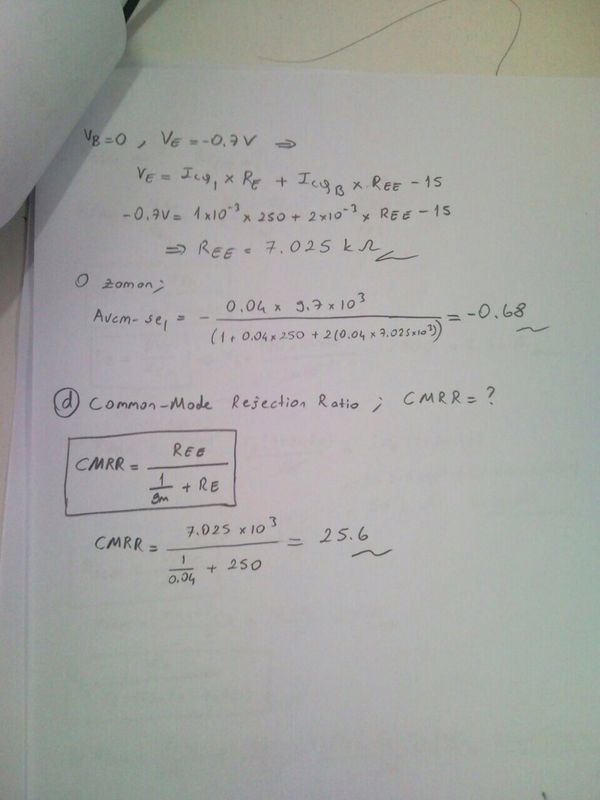 VB=0 , VE=-0.7V ⇒
VE = ICQ1 x RE + ICQB x REE - 15
-0.7V = 1x10^-3 x 250 + 2x10^-3 x REE - 15
⇒ REE = 7.025 kΩ
O zaman;
Avcm-se1 = - 0.04 x 9.7 x 10^3 / (1 + 0.04 x 250 + 2(0.04 x 7.025x10^3)) = -0.68
(d) Common-Mode Rejection Ratio ; CMRR = ?
CMRR = REE / (1/gm + RE)
CMRR = 7.025 x 10^3 / (1/0.04 + 250) = 25.6